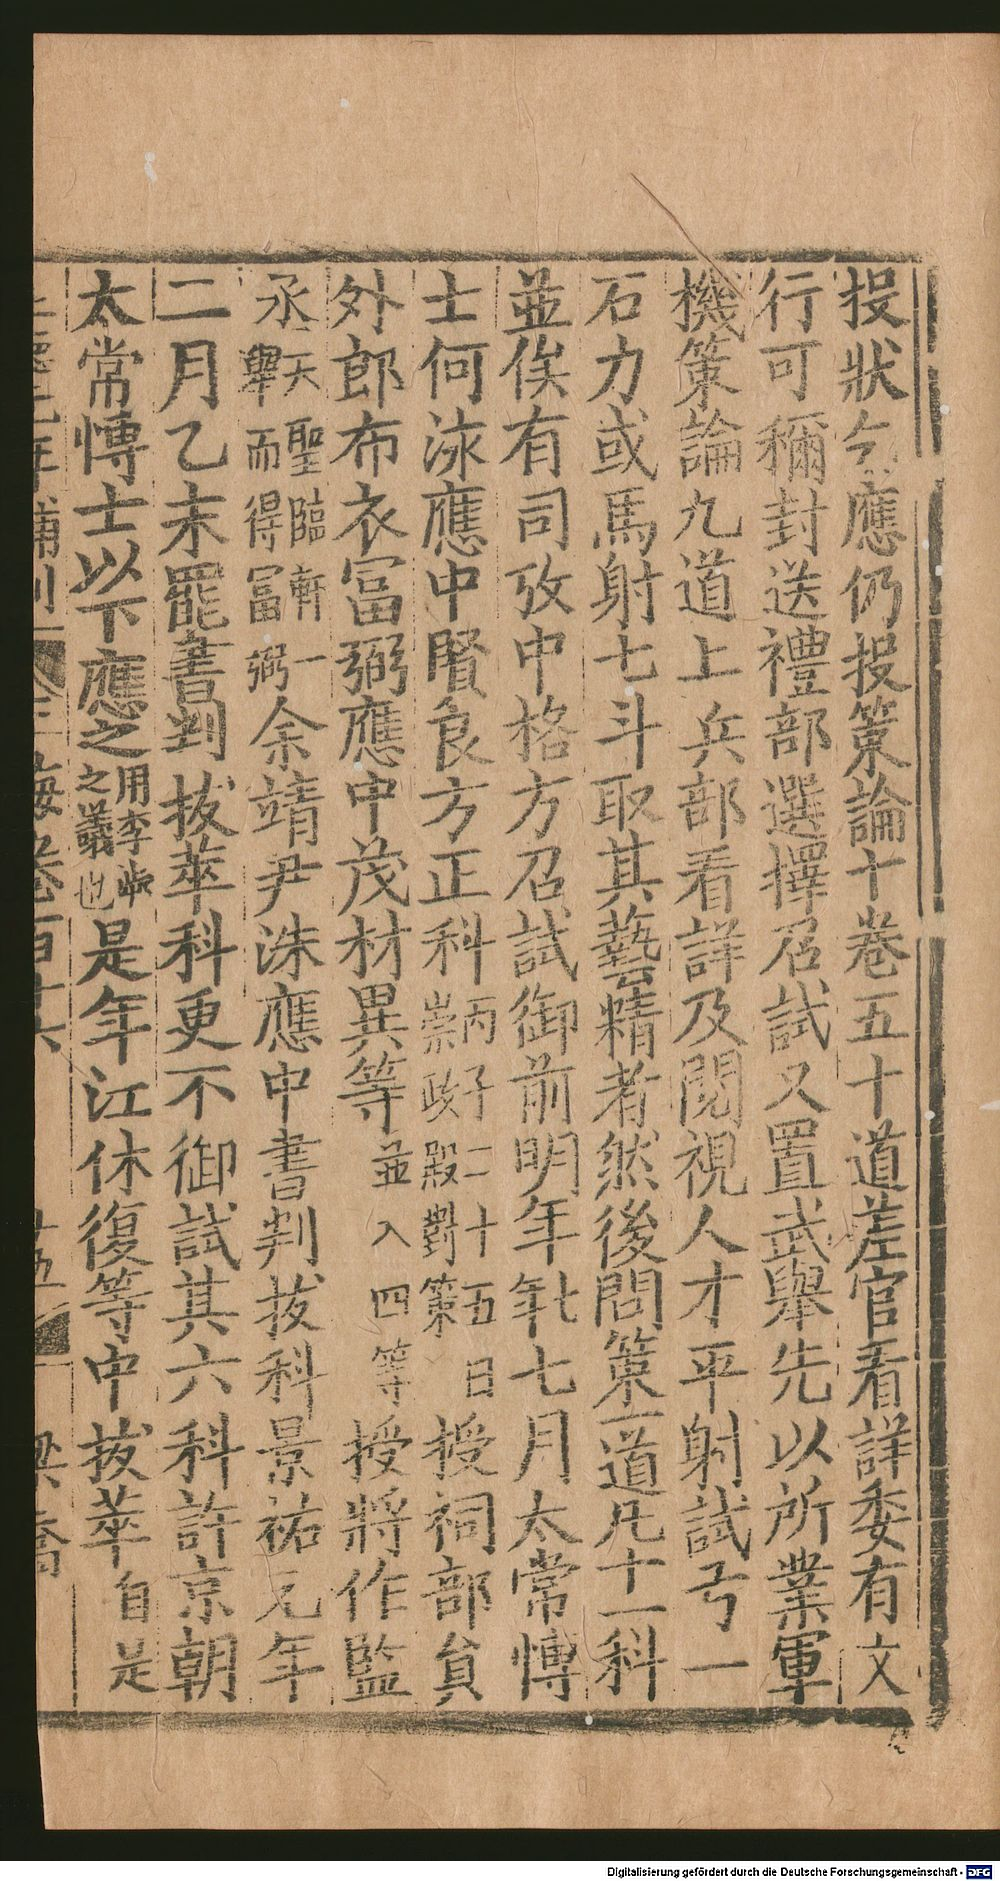 投狀乞應仍投策論十卷五十道差官看詳委有文
行可稱封送禮部選擇召試又置武舉先以所業軍
機策論九道上兵部看詳及閱視人才平射試弓一
石力或馬射七斗取其藝精者然後問策一道凡十一科
並俟有司攷中格方召試御前明年七年七月太常愽
士何泳應中賢良方正科丙子二十五日崇政殿對策授祠部負
外郎布衣冨弼應中茂材異等並入四等授將作監
丞天聖臨軒一舉而得冨弼余靖尹洙應中書判拔科景祐元年
二月乙未罷書判拔萃科更不御試其六科許京朝
太常愽士以下應之用李淑之議也是年江休復等中拔萃自是
梁喬
Digitalisierung gefördert durch die Deutsche Forschungsgemeinschaft - DFG